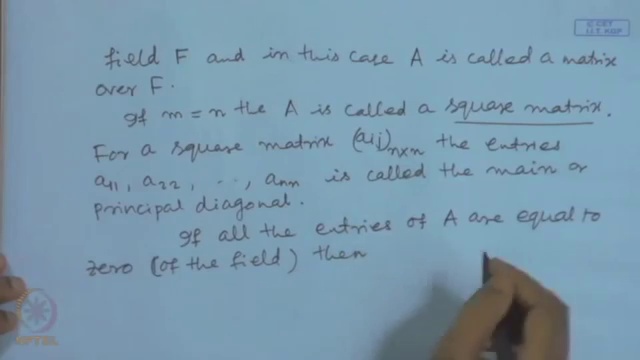 © CET
I.I.T. KGP
field F and in this case A is called a matrix
over F.
If m = n the A is called a square matrix.
For a square matrix (aij)n×n the entries
a11, a22, ..., ann is called the main or
principal diagonal.
If all the entries of A are equal to
zero (of the field) then
NPTEL